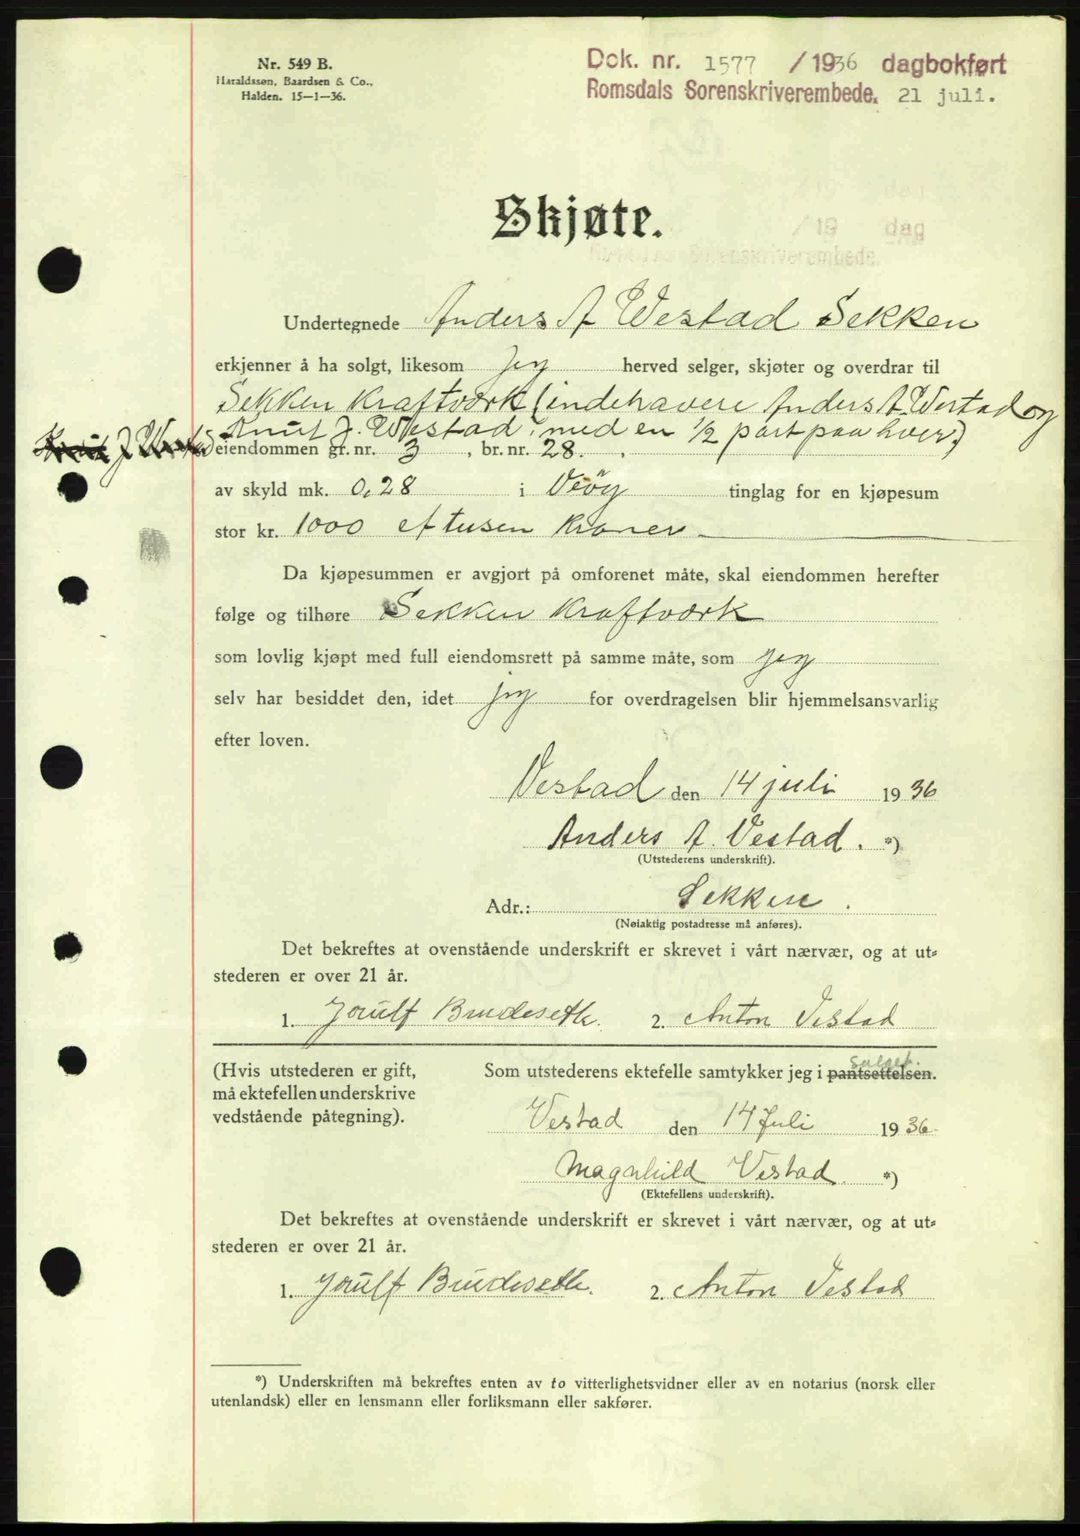 Nr. 549 B.
Haraldssøn, Baardsen & Co.,
Halden. 15—1—36.
Dok. nr. 1577 / 1936 dagbokført
Romsdals Sorenskriverembede. 21 juli.
/19 dag
Sorenskriverembede.
Skjøte.
Undertegnede Anders A Westad Sekken
erkjenner å ha solgt, likesom jeg herved selger, skjøter og overdrar til
Sekken Kraftværk (indehavere Anders A. Westad og
Knut J. Westad med en 1/2 part paa hver)
Knut J Westad
eiendommen gr. nr. 3 , br. nr. 28.
av skyld mk. 0,28 i Veöy tinglag for en kjøpesum
stor kr. 1000 ettusen kroner
Da kjøpesummen er avgjort på omforenet måte, skal eiendommen herefter
følge og tilhøre Sekken Kraftværk
som lovlig kjøpt med full eiendomsrett på samme måte, som jeg
selv har besiddet den, idet jeg for overdragelsen blir hjemmelsansvarlig
efter loven.
Vestad den 14 juli 1936
Anders A. Vestad. *)
(Utstederens underskrift).
Adr.: Sekken.
(Nøiaktig postadresse må anføres).
Det bekreftes at ovenstående underskrift er skrevet i vårt nærvær, og at ut-
stederen er over 21 år.
1. Brudeseth. 2. Anton Vestad
(Hvis utstederen er gift,
må ektefellen underskrive
vedstående påtegning).
salget.
Som utstederens ektefelle samtykker jeg i pantsettelsen.
Vestad den 14 Juli 1936
Magnhild Vestad. *)
(Ektefellens underskrift).
Det bekreftes at ovenstående underskrift er skrevet i vårt nærvær, og at ut-
stederen er over 21 år.
1. Brudeseth. 2. Anton Vestad
*) Underskriften må bekreftes enten av to vitterlighetsvidner eller av en notarius (norsk eller
utenlandsk) eller en lensmann eller forliksmann eller sakfører.